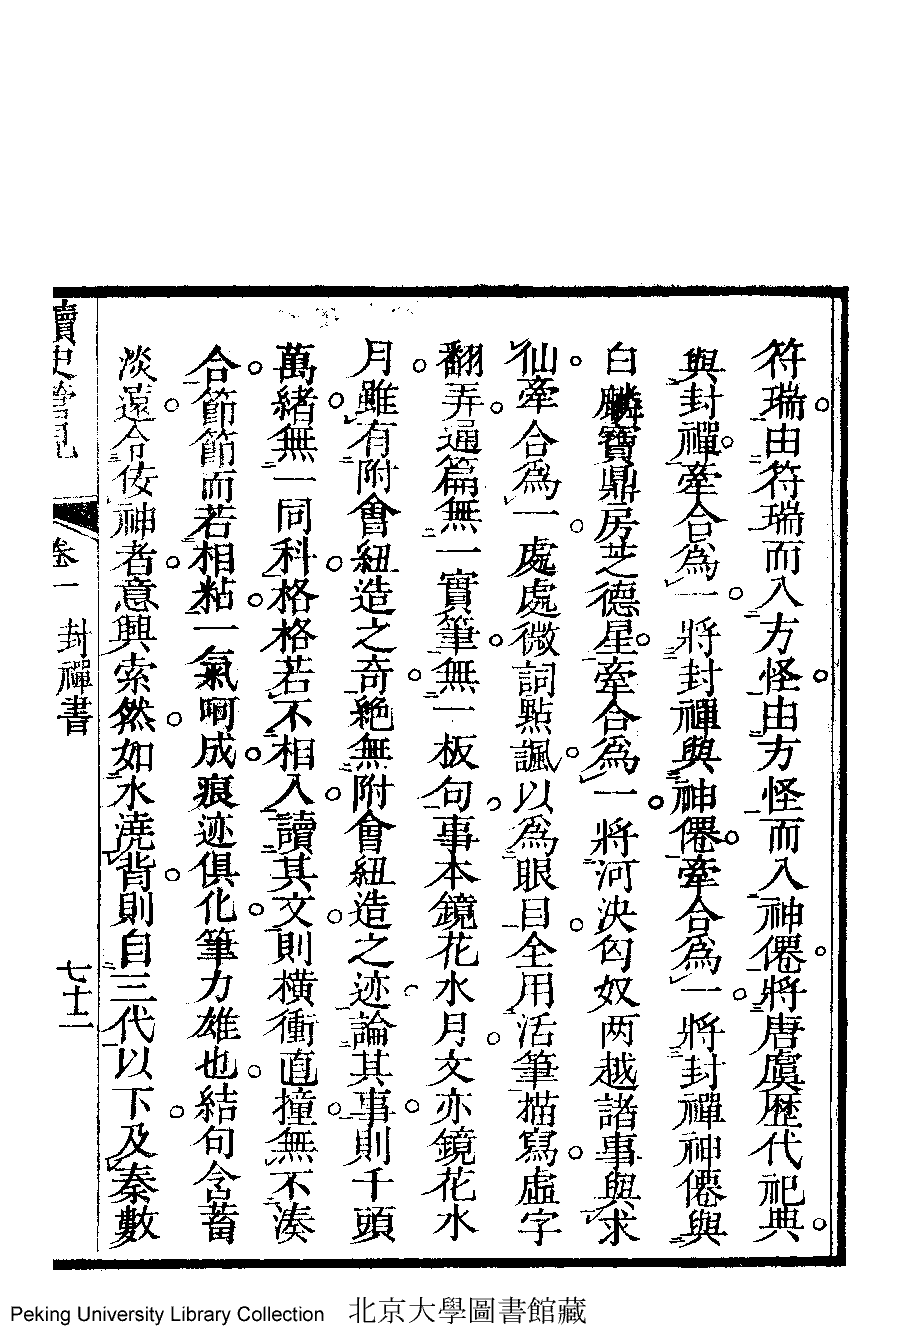 符瑞由符瑞而入方怪由方怪而入神僊將唐虞歷代祀典
與封禪牽合為一將封禪與神僊牽合為一將封禪神僊與
白麟寶鼎房芝德星牽合為一將河決匈奴兩越諸事與求
仙牽合為一處處微詞點諷以為眼目全用活筆描寫虛字
翻弄通篇無一實筆無一板句事本鏡花水月文亦鏡花水
月雖有附會紐造之奇絕無附會紐造之迹論其事則千頭
萬緒無一同科格格若不相入讀其文則橫衝直撞無不湊
合節節而若相粘一氣呵成痕迹俱化筆力雄也結句含蓄
淡遠令佞神者意興索然如水澆背則自三代以下及秦數
讀史管見 卷一 封禪書 七十二
Peking University Library Collection 北京大學圖書館藏